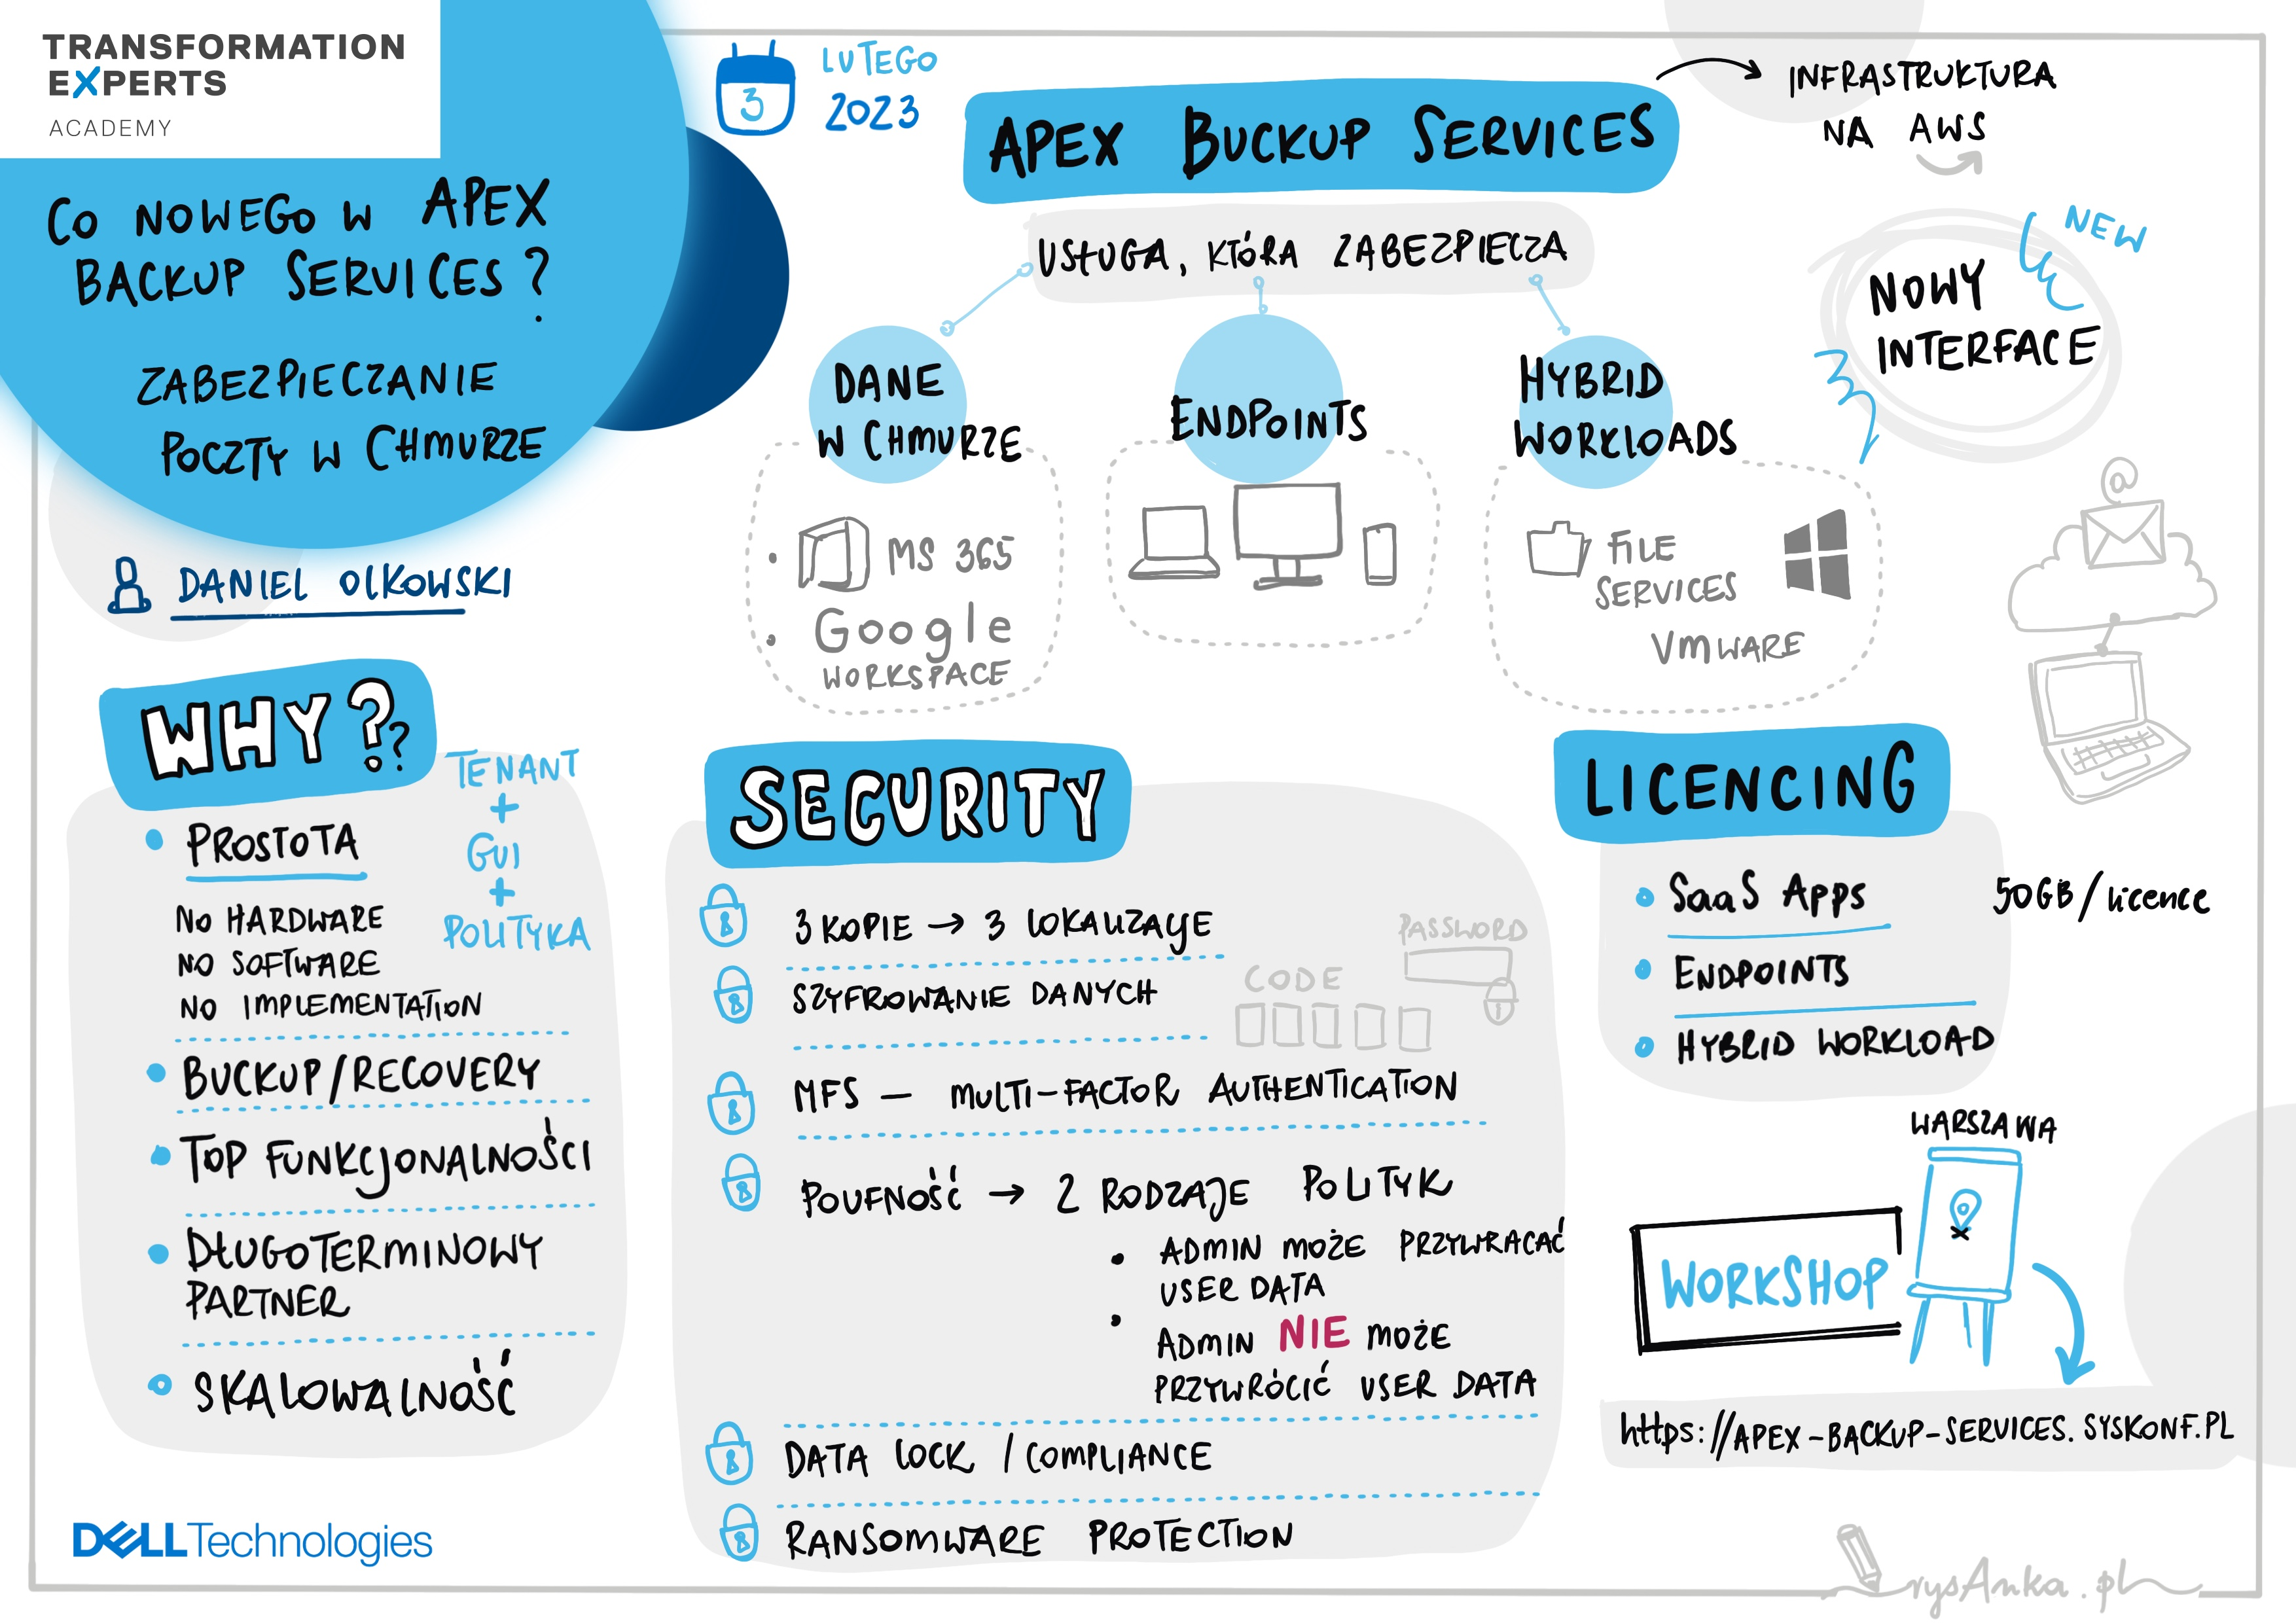 TRANSFORMATION
EXPERTS
ACADEMY
CO NOWEGO W APEX
BACKUP SERVICES?
ZABEZPIECZANIE
POCZTY W CHMURZE
DANIEL OLKOWSKI
3
LUTEGO
2023
APEX BUCKUP SERVICES
INFRASTRUKTURA
NA AWS
USŁUGA, KTÓRA ZABEZPIECZA
NEW
NOWY
INTERFACE
DANE
W CHMURZE
• MS 365
• Google
WORKSPACE
ENDPOINTS
HYBRID
WORKLOADS
FILE
SERVICES
VMWARE
@
WHY??
TENANT
+
GUI
+
POLITYKA
• PROSTOTA
NO HARDWARE
NO SOFTWARE
NO IMPLEMENTATION
• BUCKUP/RECOVERY
• TOP FUNKCJONALNOŚCI
• DŁUGOTERMINOWY
PARTNER
• SKALOWALNOŚĆ
SECURITY
3 KOPIE → 3 LOKALIZACJE
SZYFROWANIE DANYCH
CODE
PASSWORD
MFS — MULTI-FACTOR AUTHENTICATION
POUFNOŚĆ → 2 RODZAJE POLITYK
• ADMIN MOŻE PRZYWRACAĆ
USER DATA
• ADMIN NIE MOŻE
PRZYWRÓCIĆ USER DATA
DATA LOCK / COMPLIANCE
RANSOMWARE PROTECTION
LICENCING
• SaaS Apps
50GB/licence
• ENDPOINTS
• HYBRID WORKLOAD
WARSZAWA
WORKSHOP
https://APEX-BACKUP-SERVICES.SYSKONF.PL
DELL Technologies
rysAnka.pl